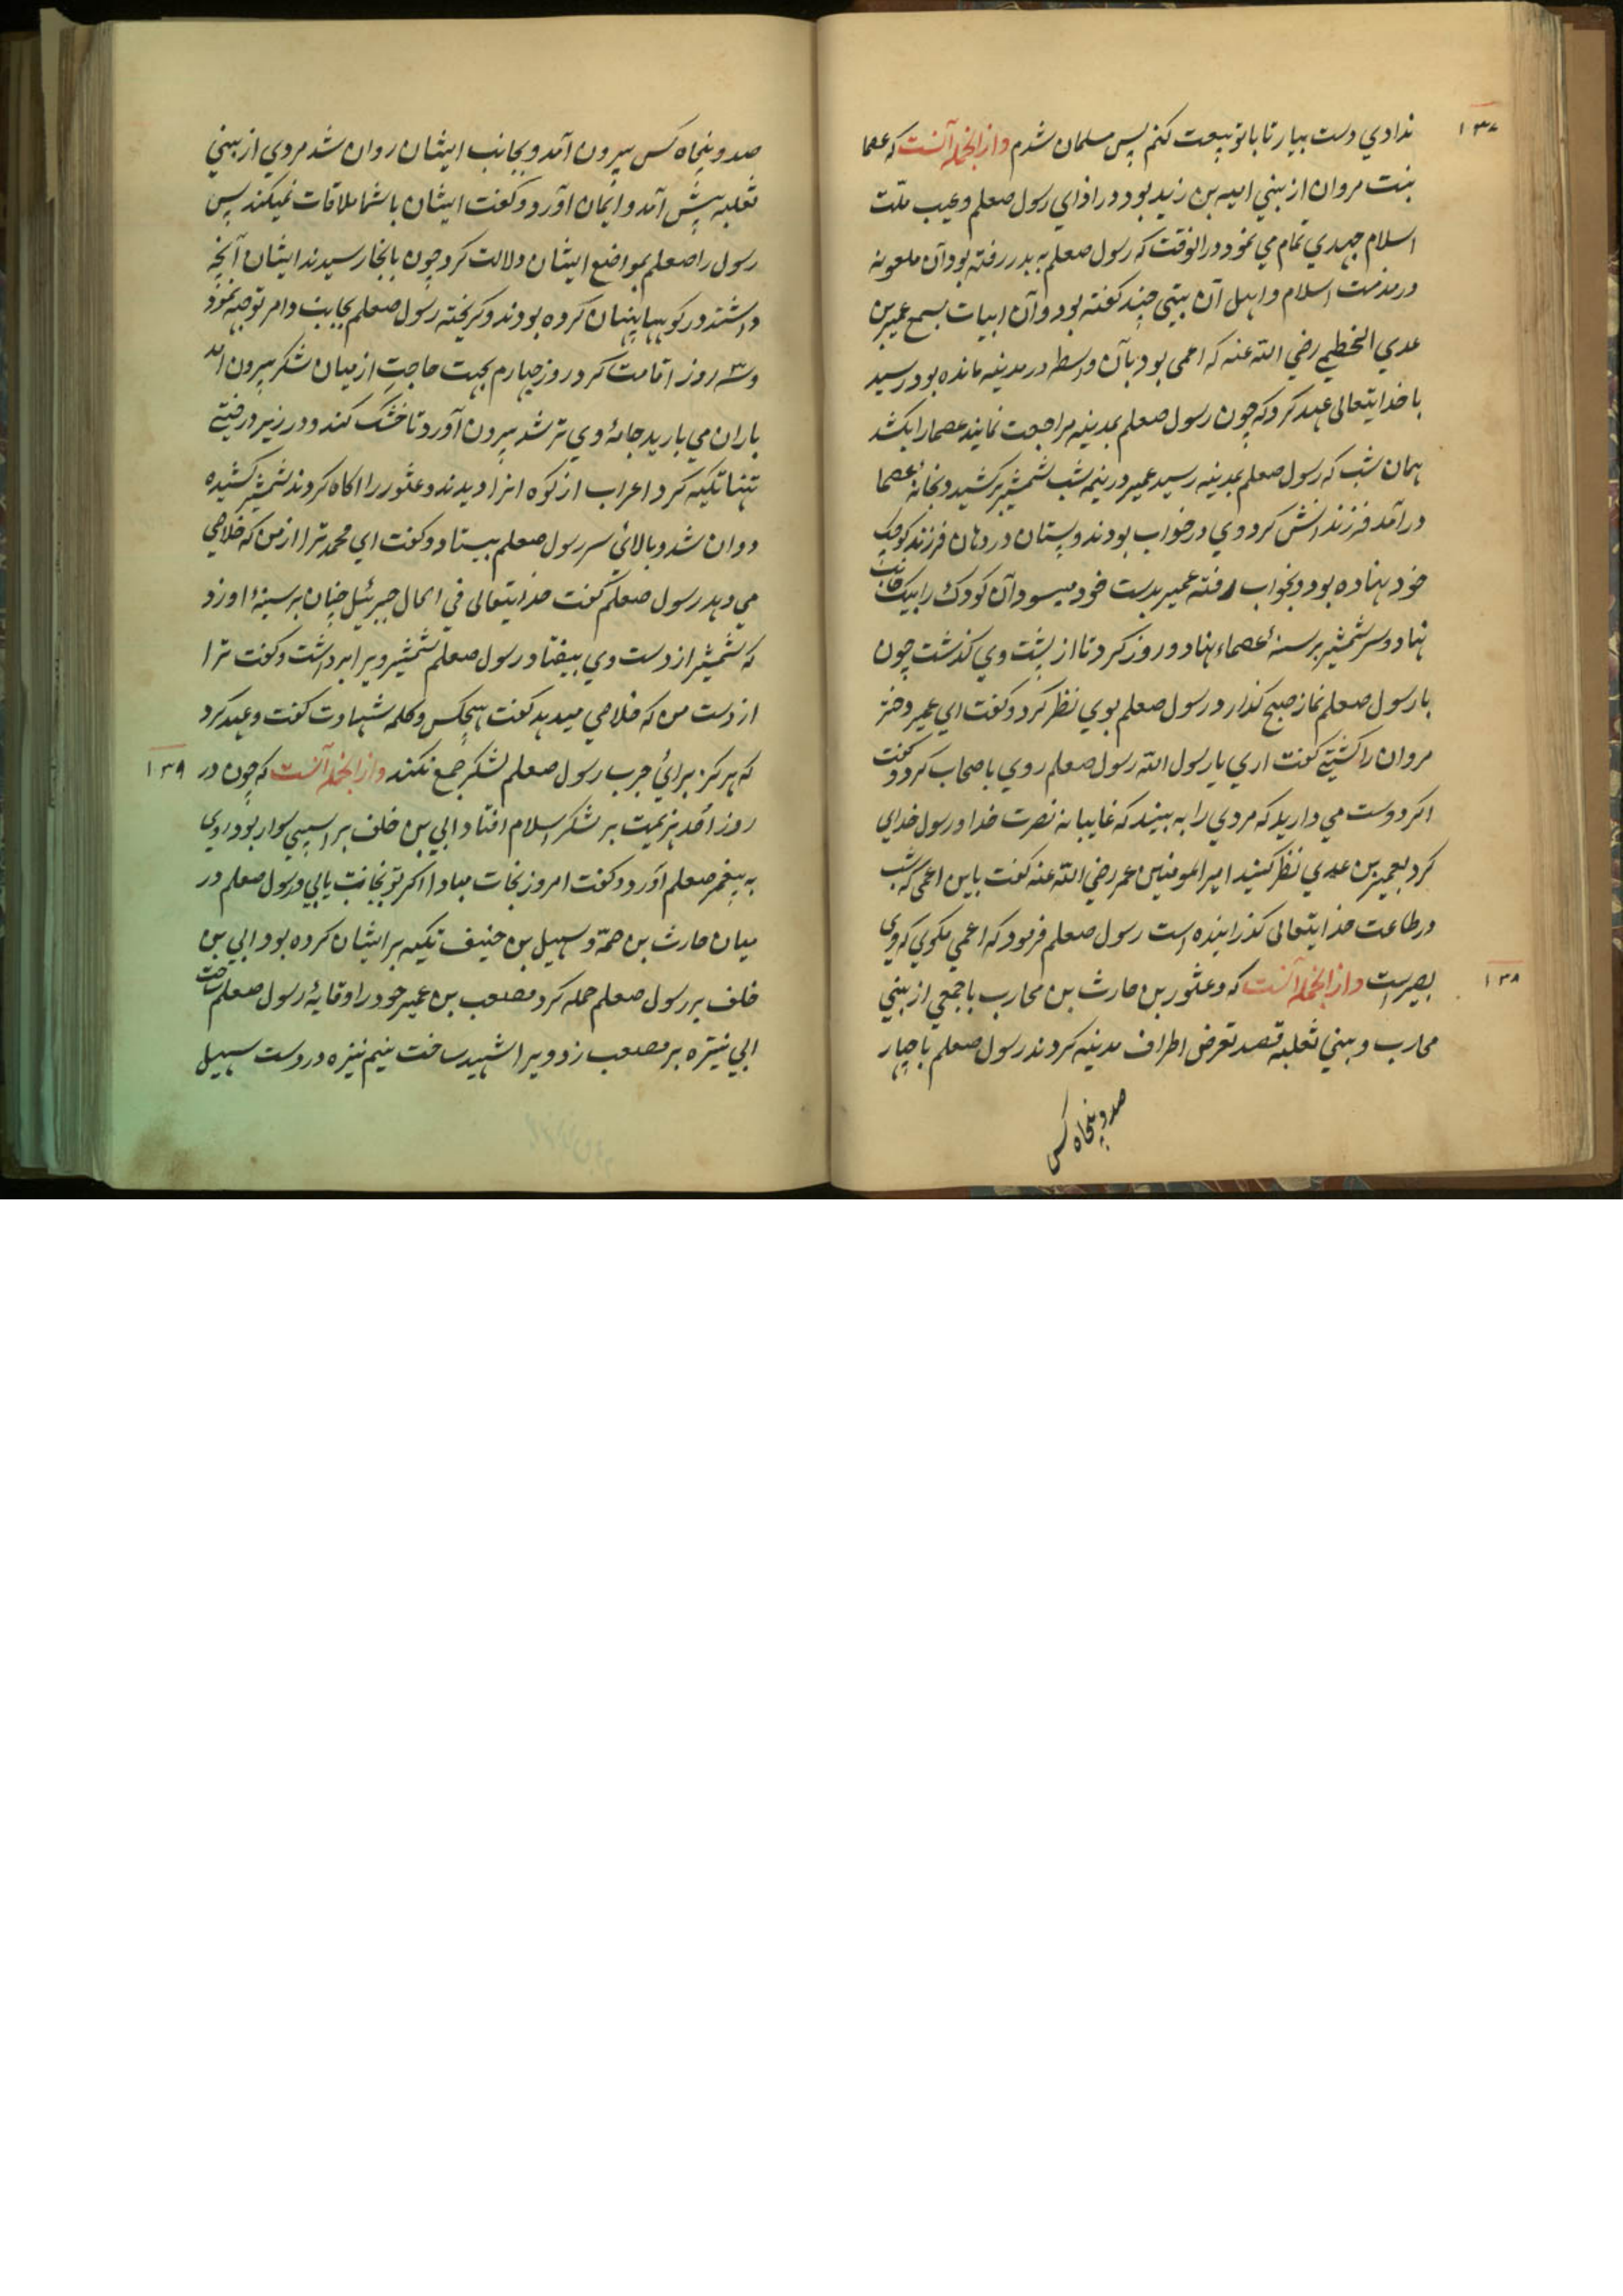 ۱۳۷
ندادي دست بيار تا با تو بيعت كنم پس مسلمان شدم و از انجمله آنست كه عصما
بنت مروان از بني اميه بن زيد بود در اذاي رسول صعلم و عيب ملت
اسلام جهدي تمام مي نمود در انوقت كه رسول صعلم به بدر رفته بود آن ملعونه
در مذمت اسلام و اهل آن بيتي چند گفته بود و آن ابيات بسمع عمير بن
عدي الخطمي رضي الله عنه كه اعمى بود بآن واسطه در مدينه مانده بود رسيد
با خدايتعالى عهد كرد كه چون رسول صعلم بمدينه مراجعت نمايند عصما را بكشد
همان شب كه رسول صعلم بمدينه رسيد عمير در نيمه شب شمشير بركشيد و بخانه عصما
در آمد فرزندانش گرد وي در خواب بودند و پستان در دهان فرزند كوچك
خود نهاده بود و بخواب رفته عمير بدست خود ميسود آن كودك را بيك جانب
نهاد و سر شمشير بر سينه عصماء نهاد و زور كرد تا از پشت وي گذشت چون
با رسول صعلم نماز صبح گذارد رسول صعلم بوي نظر كرد و گفت اي عمير دختر
مروان را كشتي گفت اري يا رسول الله رسول صعلم روي باصحاب كرد و گفت
اگر دوست مي داريد كه مردي را به بينيد كه غايبانه نصرت خدا و رسول خداي
كرد بعمير بن عدي نظر كنيد امير المومنين عمر رضي الله عنه گفت باين اعمى كه شب
در طاعت خدايتعالى گذرانيده است رسول صعلم فرمود كه اعمي مگوي كه وي
۱۳۸
بصيرست و از انجمله آنست كه دعثور بن حارث بن محارب با جمعي از بني
محارب و بني ثعلبه قصد تعرض اطراف مدينه كردند رسول صعلم با چهار
صد و پنجاه كس
صد و پنجاه كس بيرون آمد و بجانب ايشان روان شد مردي از بني
ثعلبه پيش آمد و ايمان آورد و گفت ايشان با شما ملاقات نميكنند پس
رسول را صعلم بمواضع ايشان دلالت كرد چون بانجا رسيدند ايشان آنچه
داشتند در كوهها پنهان كرده بودند و گريخته رسول صعلم بجانب دامر توجه نمود
و سه روز اقامت كرد روز چهارم بجهت حاجت از ميان لشكر بيرون امد
باران مي باريد جامه وي تر شد بيرون آورد تا خشك كند و در زير درختي
تنها تكيه كرد اعراب از كوه انرا ديدند و دعثور را اگاه كردند شمشير كشيده
دوان شد و بالاي سر رسول صعلم بيستاد و گفت اي محمد ترا از من كه خلاصي
مي دهد رسول صعلم گفت خدايتعالى في الحال جبرئيل چنان بر سينه او زد
كه شمشير از دست وي بيفتاد رسول صعلم شمشير ويرا برداشت و گفت ترا
از دست من كه خلاصي ميدهد گفت هيچكس و كلمه شهادت گفت و عهد كرد
۱۳۹
كه هرگز براي حرب رسول صعلم لشكر جمع نكند و از انجمله آنست كه چون در
روز احد هزيمت بر لشكر اسلام افتاد ابي بن خلف بر اسپي سوار بود روي
به پيغمبر صعلم آورد و گفت امروز نجات مبادا اگر تو نجات يابي و رسول صعلم در
ميان حارث بن صمة و سهيل بن حنيف تكيه بر ايشان كرده بود ابي بن
خلف بر رسول صعلم حمله كرد مصعب بن عمير خود را وقايه رسول صعلم ساخت
ابي نيزه بر مصعب زد و ويرا شهيد ساخت نيم نيزه در دست سهيل